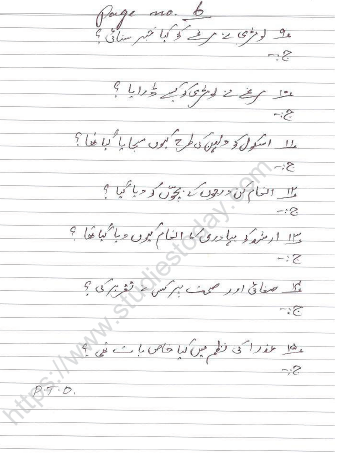 Page no. 6
۹۔ لومڑی نے مرغے کو کیا خبر سنائی؟
ج:-
۱۰۔ مرغے نے لومڑی کو کیسے ڈرایا؟
ج:-
۱۱۔ اسکول کو دلہن کی طرح کیوں سجایا گیا تھا؟
ج:-
۱۲۔ انعام کن درجوں کے بچّوں کو دیا گیا؟
ج:-
۱۳۔ ارشد کو بہادری کا انعام کیوں دیا گیا تھا؟
ج:-
۱۴۔ صفائی اور صحت پر کس نے تقریر کی؟
ج:-
۱۵۔ عذرا کی نظم میں کیا خاص بات تھی؟
ج:-
P.T.O.
https://www.studiestoday.com